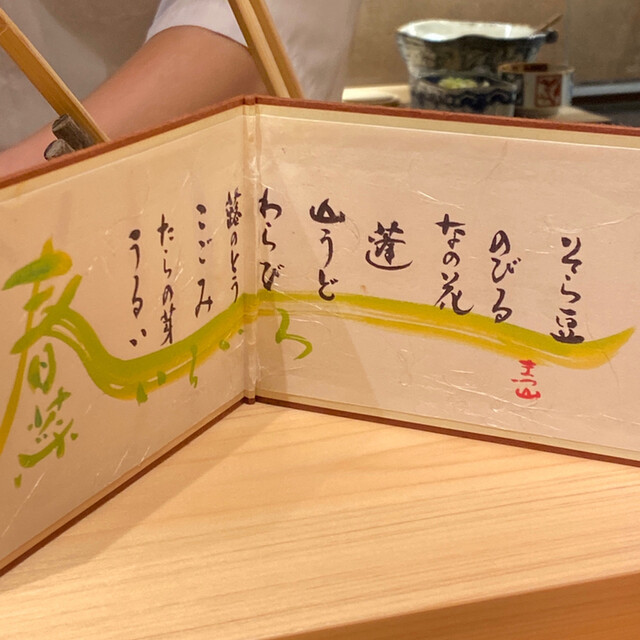 そら豆
のびる
なの花
蓬
山うど
わらび
蕗のとう
こごみ
たらの芽
うるい
春菜
いろいろ
まつ山